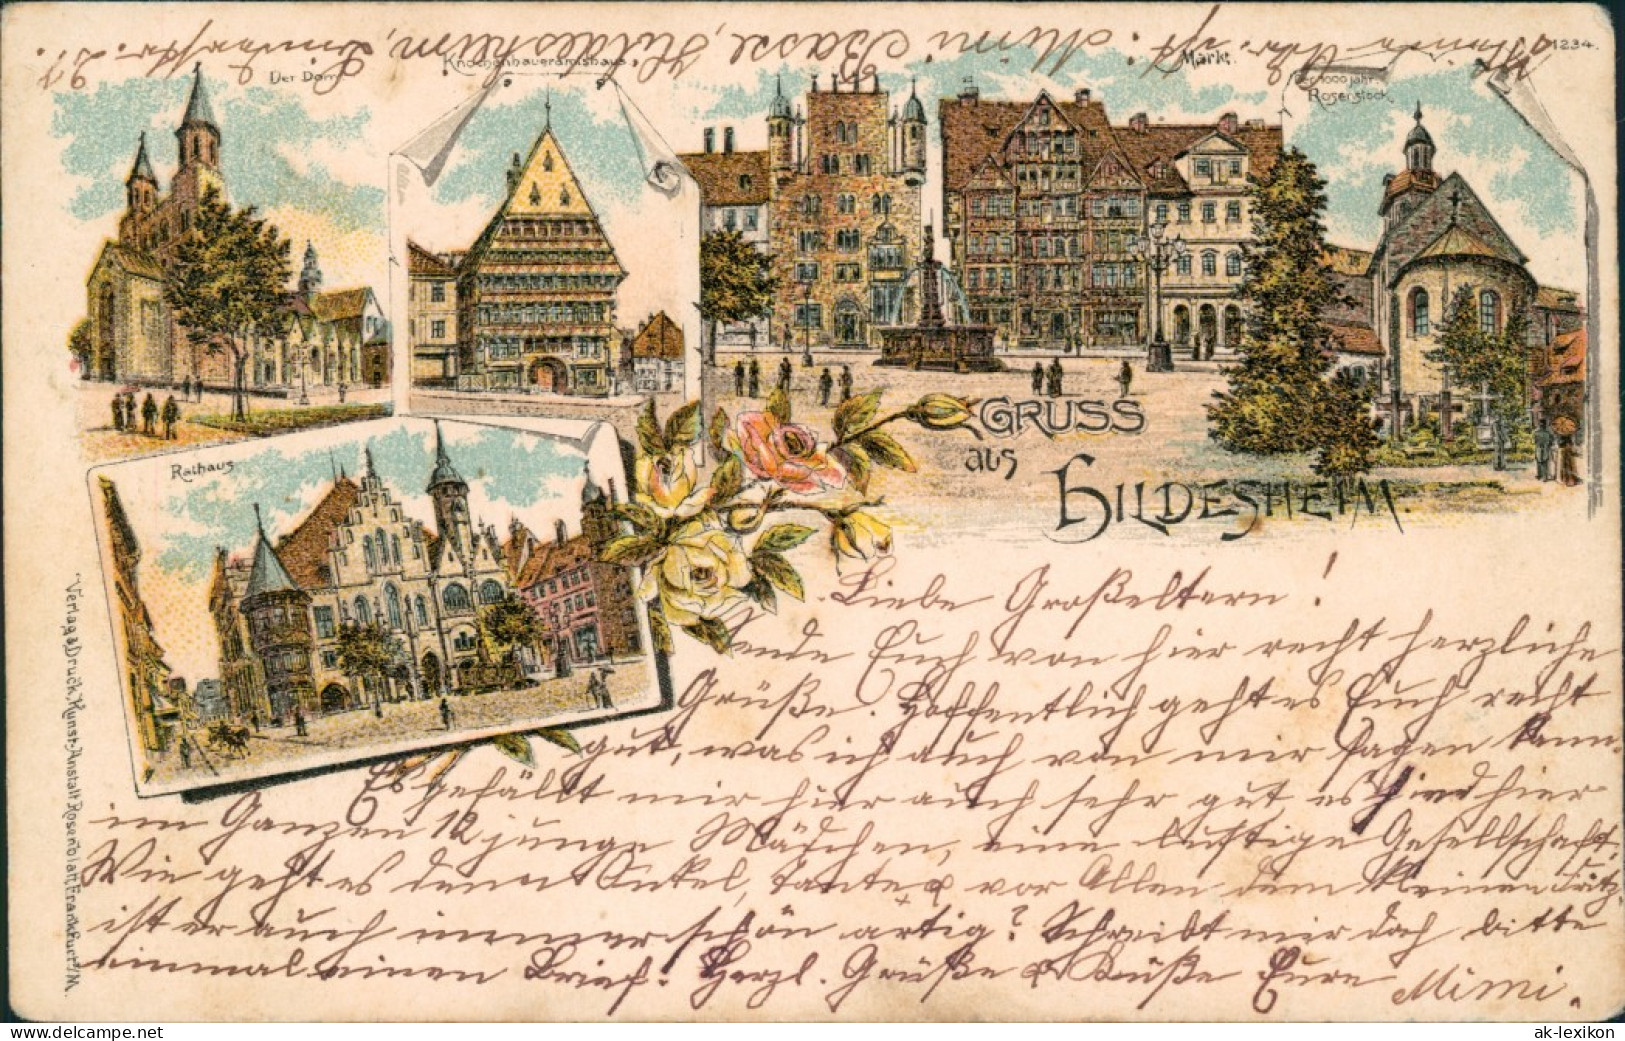 Der Dom
Knochenhaueramtshaus
Markt.
Der 1000jähr.
Rosenstock
1234.
Rathaus
GRUSS
aus
HILDESHEIM.
Verlag & Druck, Kunst-Anstalt Rosenblatt, Frankfurt a/M.
Liebe Großeltern!
Sende Euch von hier recht herzliche
Grüße. Hoffentlich geht es Euch recht
gut, was ich auch von mir sagen kann.
Es gefällt mir hier auch sehr gut es sind hier
im Ganzen 12 junge Mädchen, eine lustige Gesellschaft.
Wie geht es denn Onkel, Tante & vor Allem dem kleinen Fritz,
ist er auch immer schön artig? Schreibt mir doch bitte
einmal einen Brief. Herzl. Grüße & Küße Eure Mimi.
Mimi Basse, Hildesheim,
ak-lexikon
www.delcampe.net